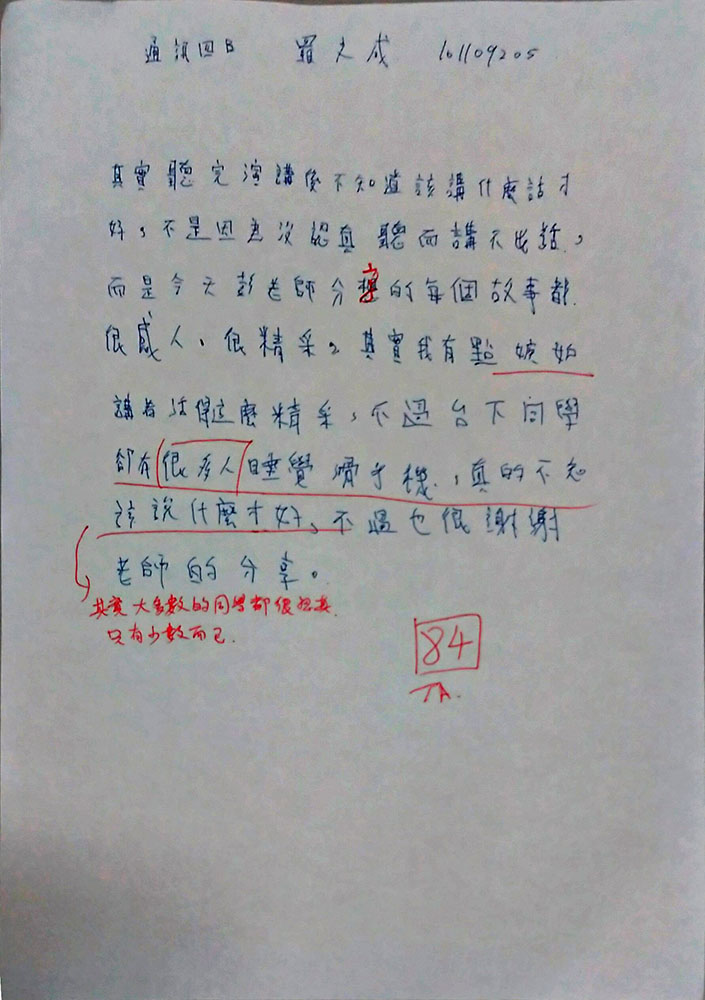 通訊四B 羅夫成 101109205
其實聽完演講後不知道該講什麼話才
好，不是因為沒認真聽而講不出話，
而是今天彭老師分享的每個故事都
很感人，很精采。其實我有點嫉妒
講者活得這麼精采，不過台下同學
卻有很多人睡覺滑手機，真的不知
該說什麼才好，不過也很謝謝
老師的分享。
其實大多數的同學都很認真
只有少數而已.
84
TA.